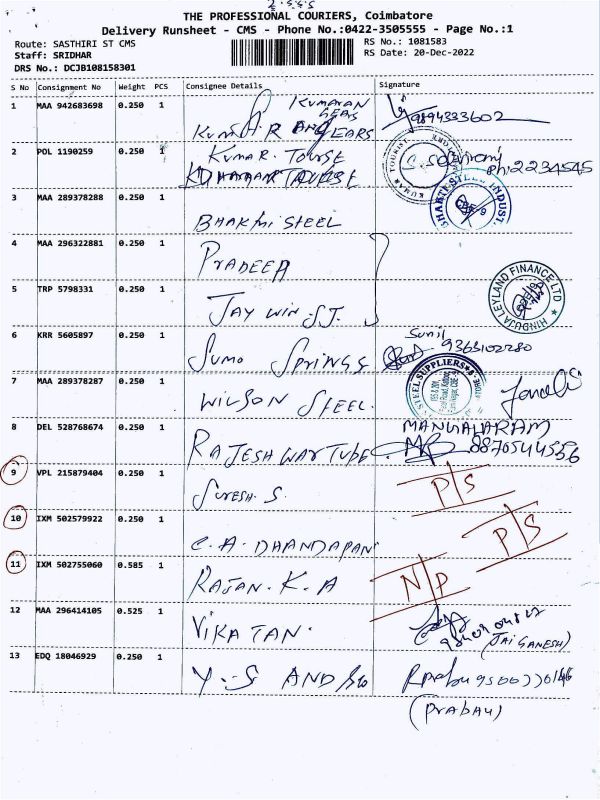 THE PROFESSIONAL COURIERS, Coimbatore
Delivery Runsheet - CMS - Phone No.:0422-3505555 - Page No.:1
Route: SASTHIRI ST CMS
RS No.: 1081583
Staff: SRIDHAR
RS Date: 20-Dec-2022
DRS No.: DCJB108158301
S No Consignment No Weight PCS Consignee Details Signature
1 MAA 942683698 0.250 1 KUMARAN GEARS 9894333602
2 POL 1190259 0.250 1 KUMAR. TOURSE Ph: 2234545
KUMAR TOURIST
3 MAA 289378288 0.250 1 BHAKTHI STEEL
4 MAA 296322881 0.250 1 PRADEEP
5 TRP 5798331 0.250 1 JAY WIN ST.
HINDUJA LEYLAND FINANCE LTD
6 KRR 5605897 0.250 1 SUMO SPRINGS Sunil 9363102280
7 MAA 289378287 0.250 1 WILSON STEEL.
STEEL SUPPLIERS
8 DEL 528768674 0.250 1 RAJESHWAR TUBE MANGALARAM 8870544556
9 VPL 215879404 0.250 1 SURESH. S. P/S
10 IXM 502579922 0.250 1 C. A. DHANDAPANI P/S
11 IXM 502755060 0.585 1 RAJAN. K. A N/P
12 MAA 296414105 0.525 1 VIKATAN (JAI GANESH)
13 EDQ 18046929 0.250 1 Y. S AND
(Prabau)